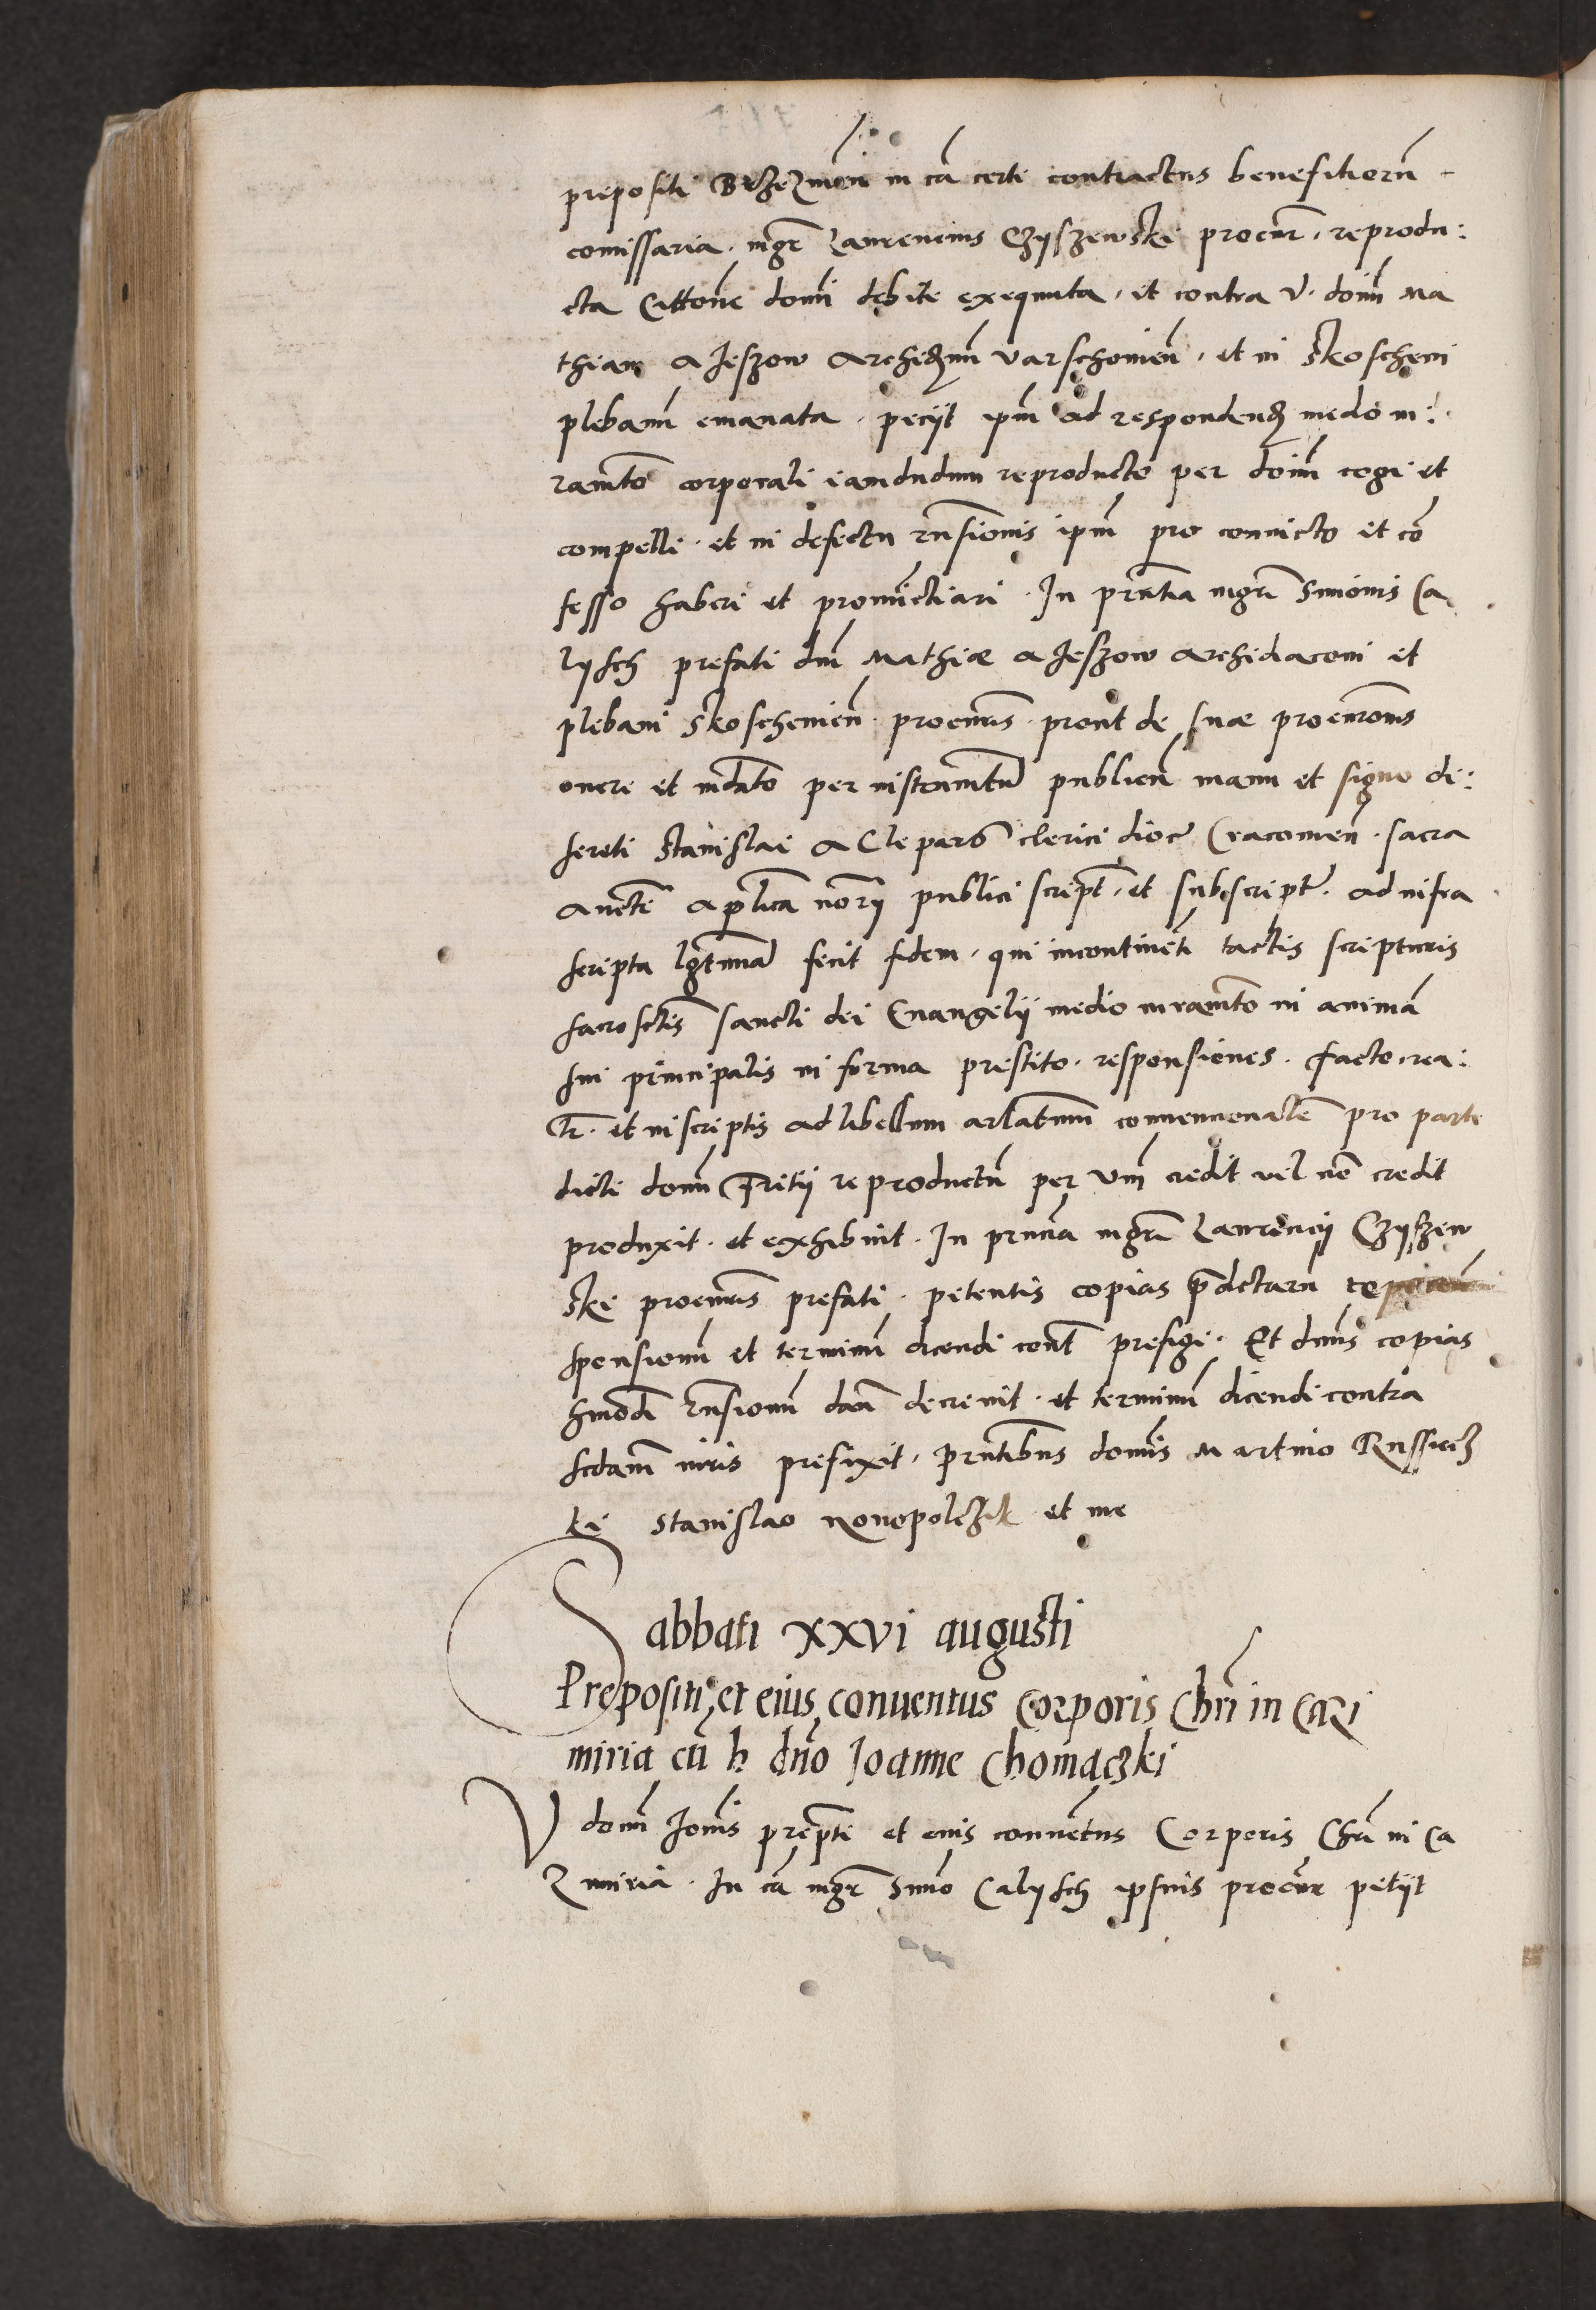 prepositi Brzezinen̄ in cā certi contractus benefitiorū
comissaria. mgr̄ Laurencius Czyszewski procur̄. reprodu:
cta Cittōne domī debite exequuta. et contra V. domī Ma
thiam a Jeszow Archidn̄m Varschouien̄. et in Skoscheni
plebanū emanata. peciit ipm̄ ad respondend medio iu:
ramēto corporali iamdudum reproducto per domī cogi et
compelli. et in defectu rn̄sionis ipm̄ pro conuicto et cō
fesso haberi et pronūctiari. In prn̄tia mgrī Simōnis Ca
lysch prefati dn̄i Mathiæ a Jeszow Archidiaconi et
plebani Skoschenien̄. procur̄is. prout de suæ procurōnis
onere et mdāto per instrumētū publicū manu et signo di:
screti Stanislai a Clepardō clerici dioc̄ Cracouien̄. sacra
auctē aplica notrii publici script̄. et subscript̄. ad infra
scripta lgt̄imā fecit fidem. qui incontinēti tactis scripturis
sacrosctīs sancti dei Euangelii medio iuramēto in animā
sui principalis in forma prestito. responsiones. facto. rea:
lr̄. et in scriptis ad libellum arlatum conuencionalē pro parte
dicti domī Fritii reproductū per Vm̄ credit vel nō credit
produxit. et exhibuit. In prn̄tia mgrī Laurencii Czyszew
ski procur̄is prefati. petentis copias p̄dctarū re
sponsionū et terminū dicendi cont̄ prefigi. Et dn̄us copias
hmōdi rn̄sionū dari decreuit. et terminū dicendi contra
scdam iuris prefixit. prn̄tibus domīs Martino Russiecz
ki Stanislao Nouopolczik et me
Sabbati XXVI augusti
Prepositi et eius conuentus Corporis Chrī in Cazi
miria cū h dn̄o Joanne Chomaczki
V domī Joānis prepti et eius conuētus Corporis Chrī in Ca
zimiria. In cā mgr̄ Simō Calysch ipsius procur̄ petiit